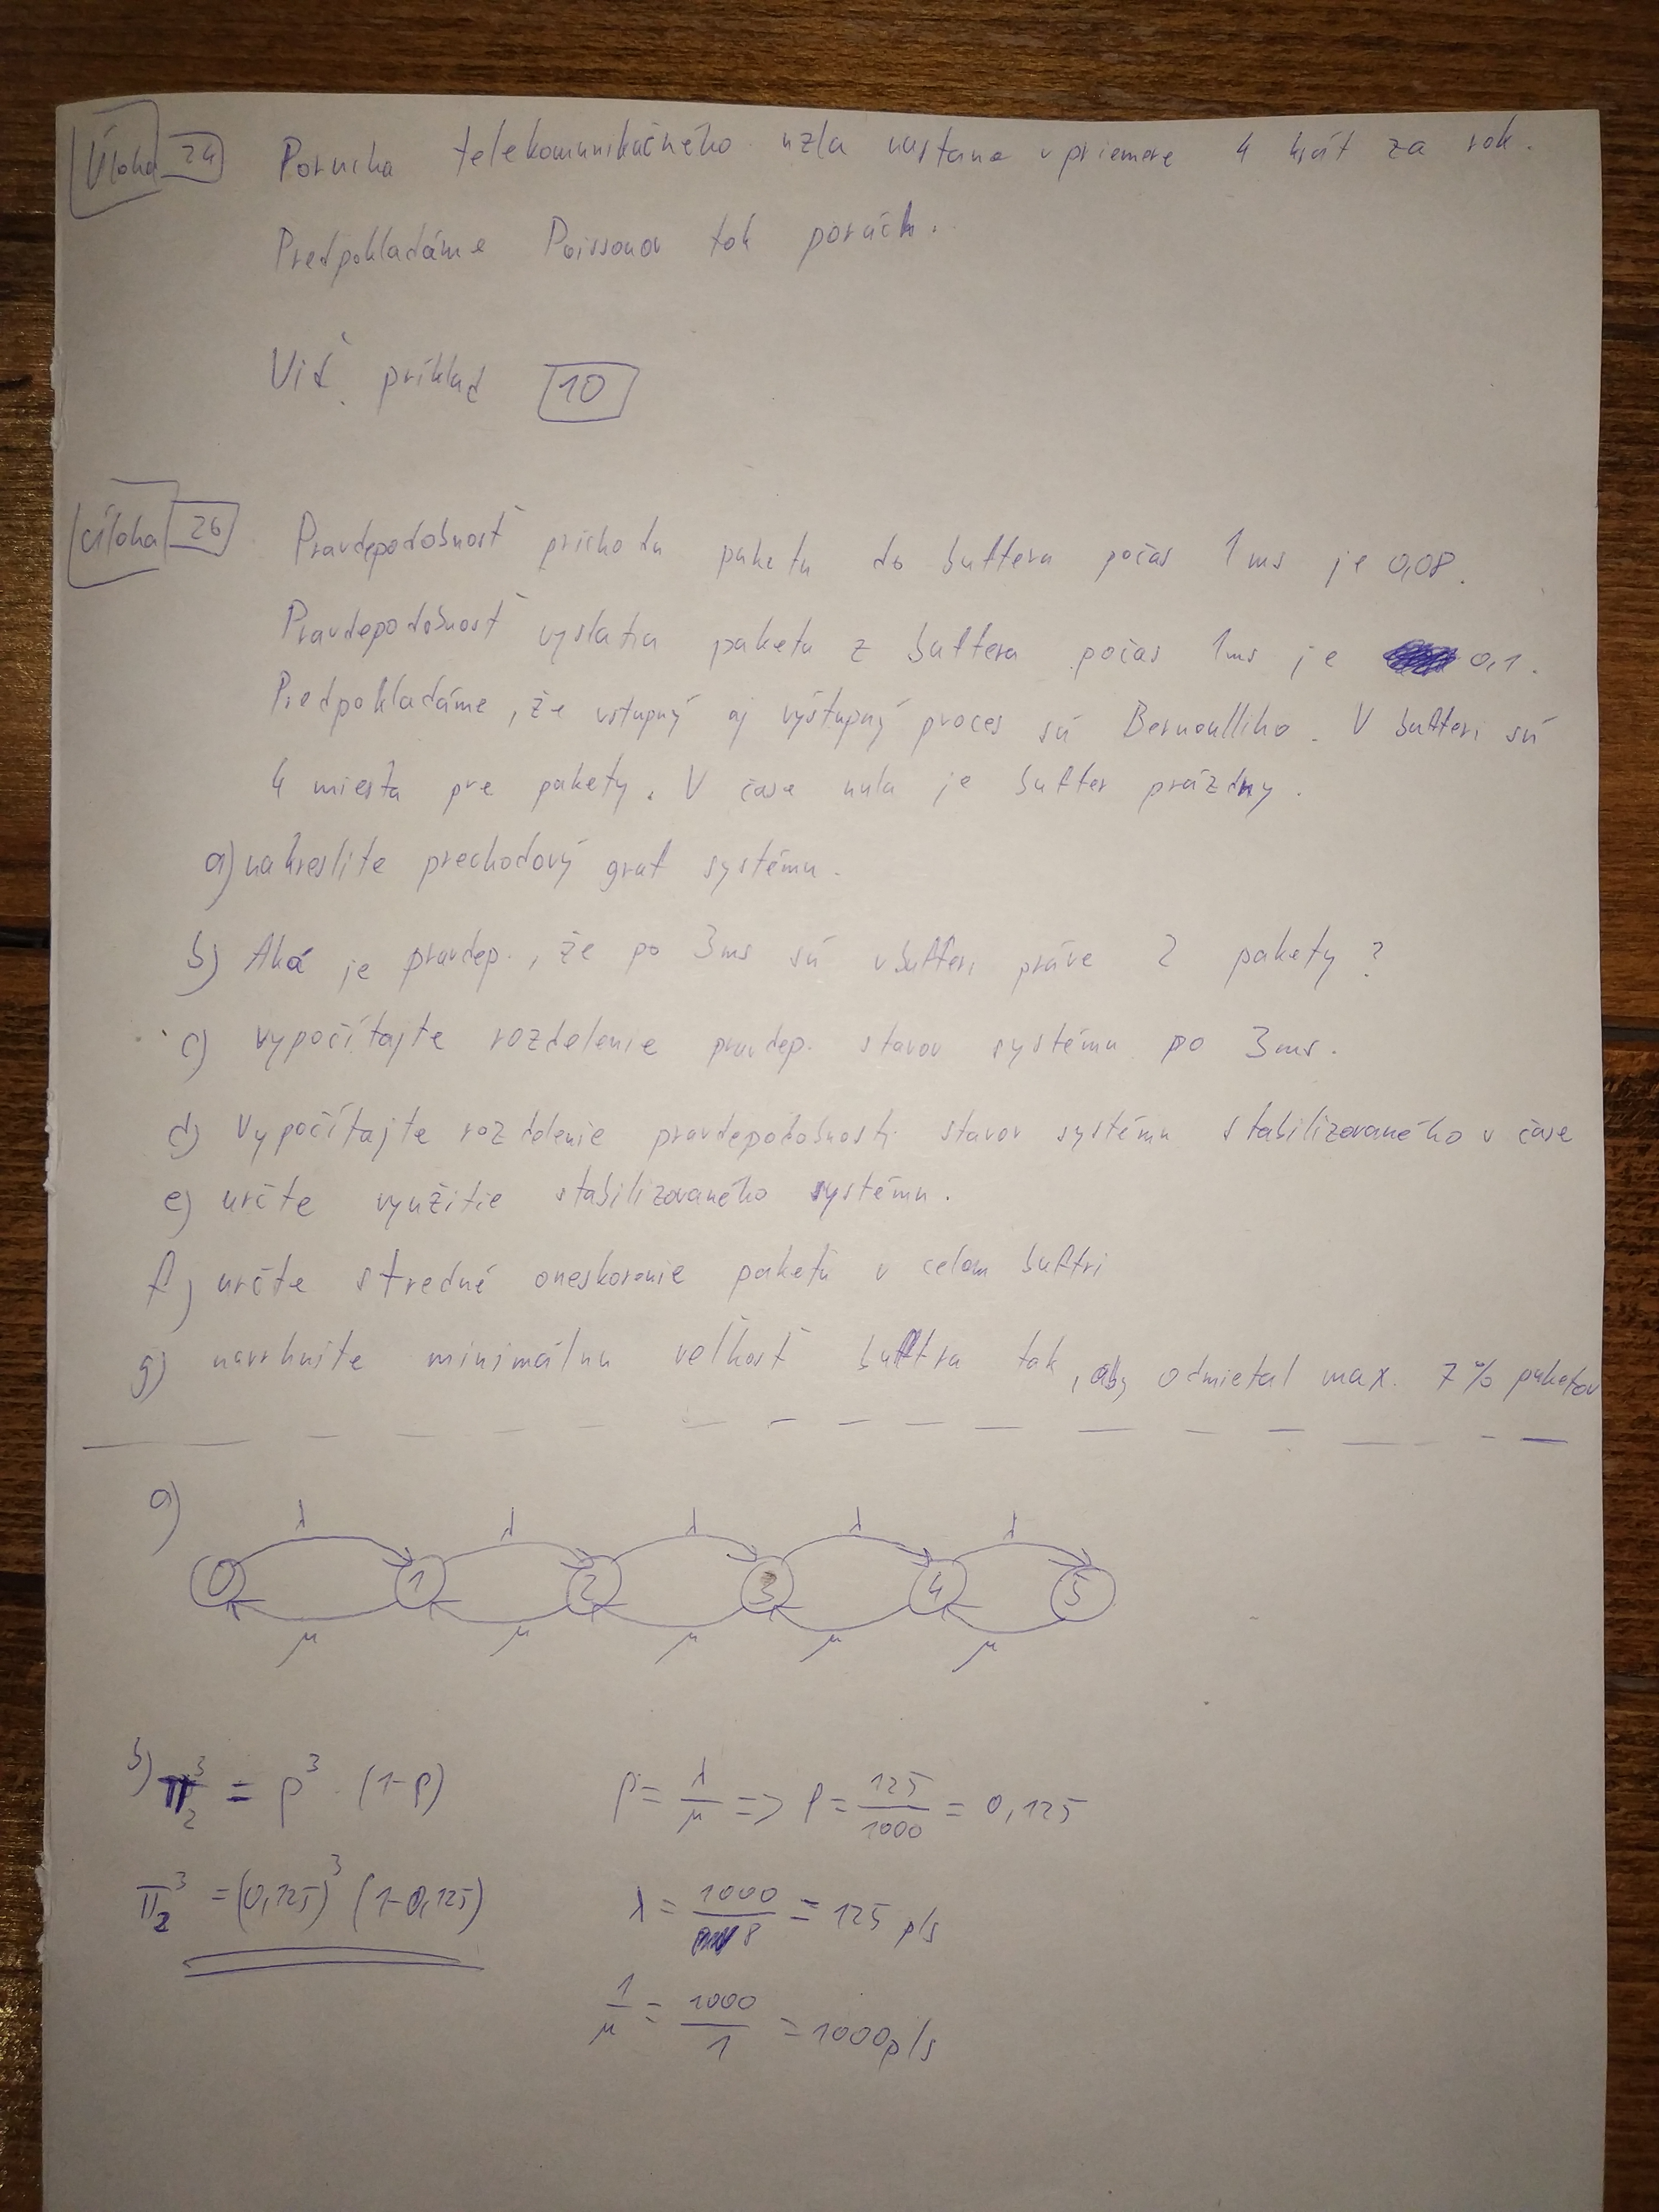 Úloha 24 Porucha telekomunikačného uzla nastane v priemere 4 krát za rok.
Predpokladáme Poissonov tok porúch.
Viď príklad 10
Úloha 26 Pravdepodobnosť príchodu paketu do buffera počas 1ms je 0,08.
Pravdepodobnosť vyslatia paketu z buffera počas 1ms je 0,1.
Predpokladáme, že vstupný aj výstupný proces sú Bernoulliho. V bufferi sú
4 miesta pre pakety. V čase nula je buffer prázdny.
a) nakreslite prechodový graf systému.
b) Aká je pravdep., že po 3ms sú v bufferi práve 2 pakety?
c) vypočítajte rozdelenie pravdep. stavov systému po 3ms.
d) Vypočítajte rozdelenie pravdepodobnosti stavov systému stabilizovaného v čase
e) určte využitie stabilizovaného systému.
f) určte stredné oneskorenie paketu v celom buffri
g) navrhnite minimálnu veľkosť buffra tak, aby odmietal max. 7% paketov
a)
λ λ λ λ λ
0 1 2 3 4 5
μ μ μ μ μ
b) π₂³ = ρ³ · (1-ρ) ρ = λ/μ => ρ = 125/1000 = 0,125
π₂³ = (0,125)³ (1-0,125) λ = 1000/8 = 125 p/s
1/μ = 1000/1 = 1000p/s